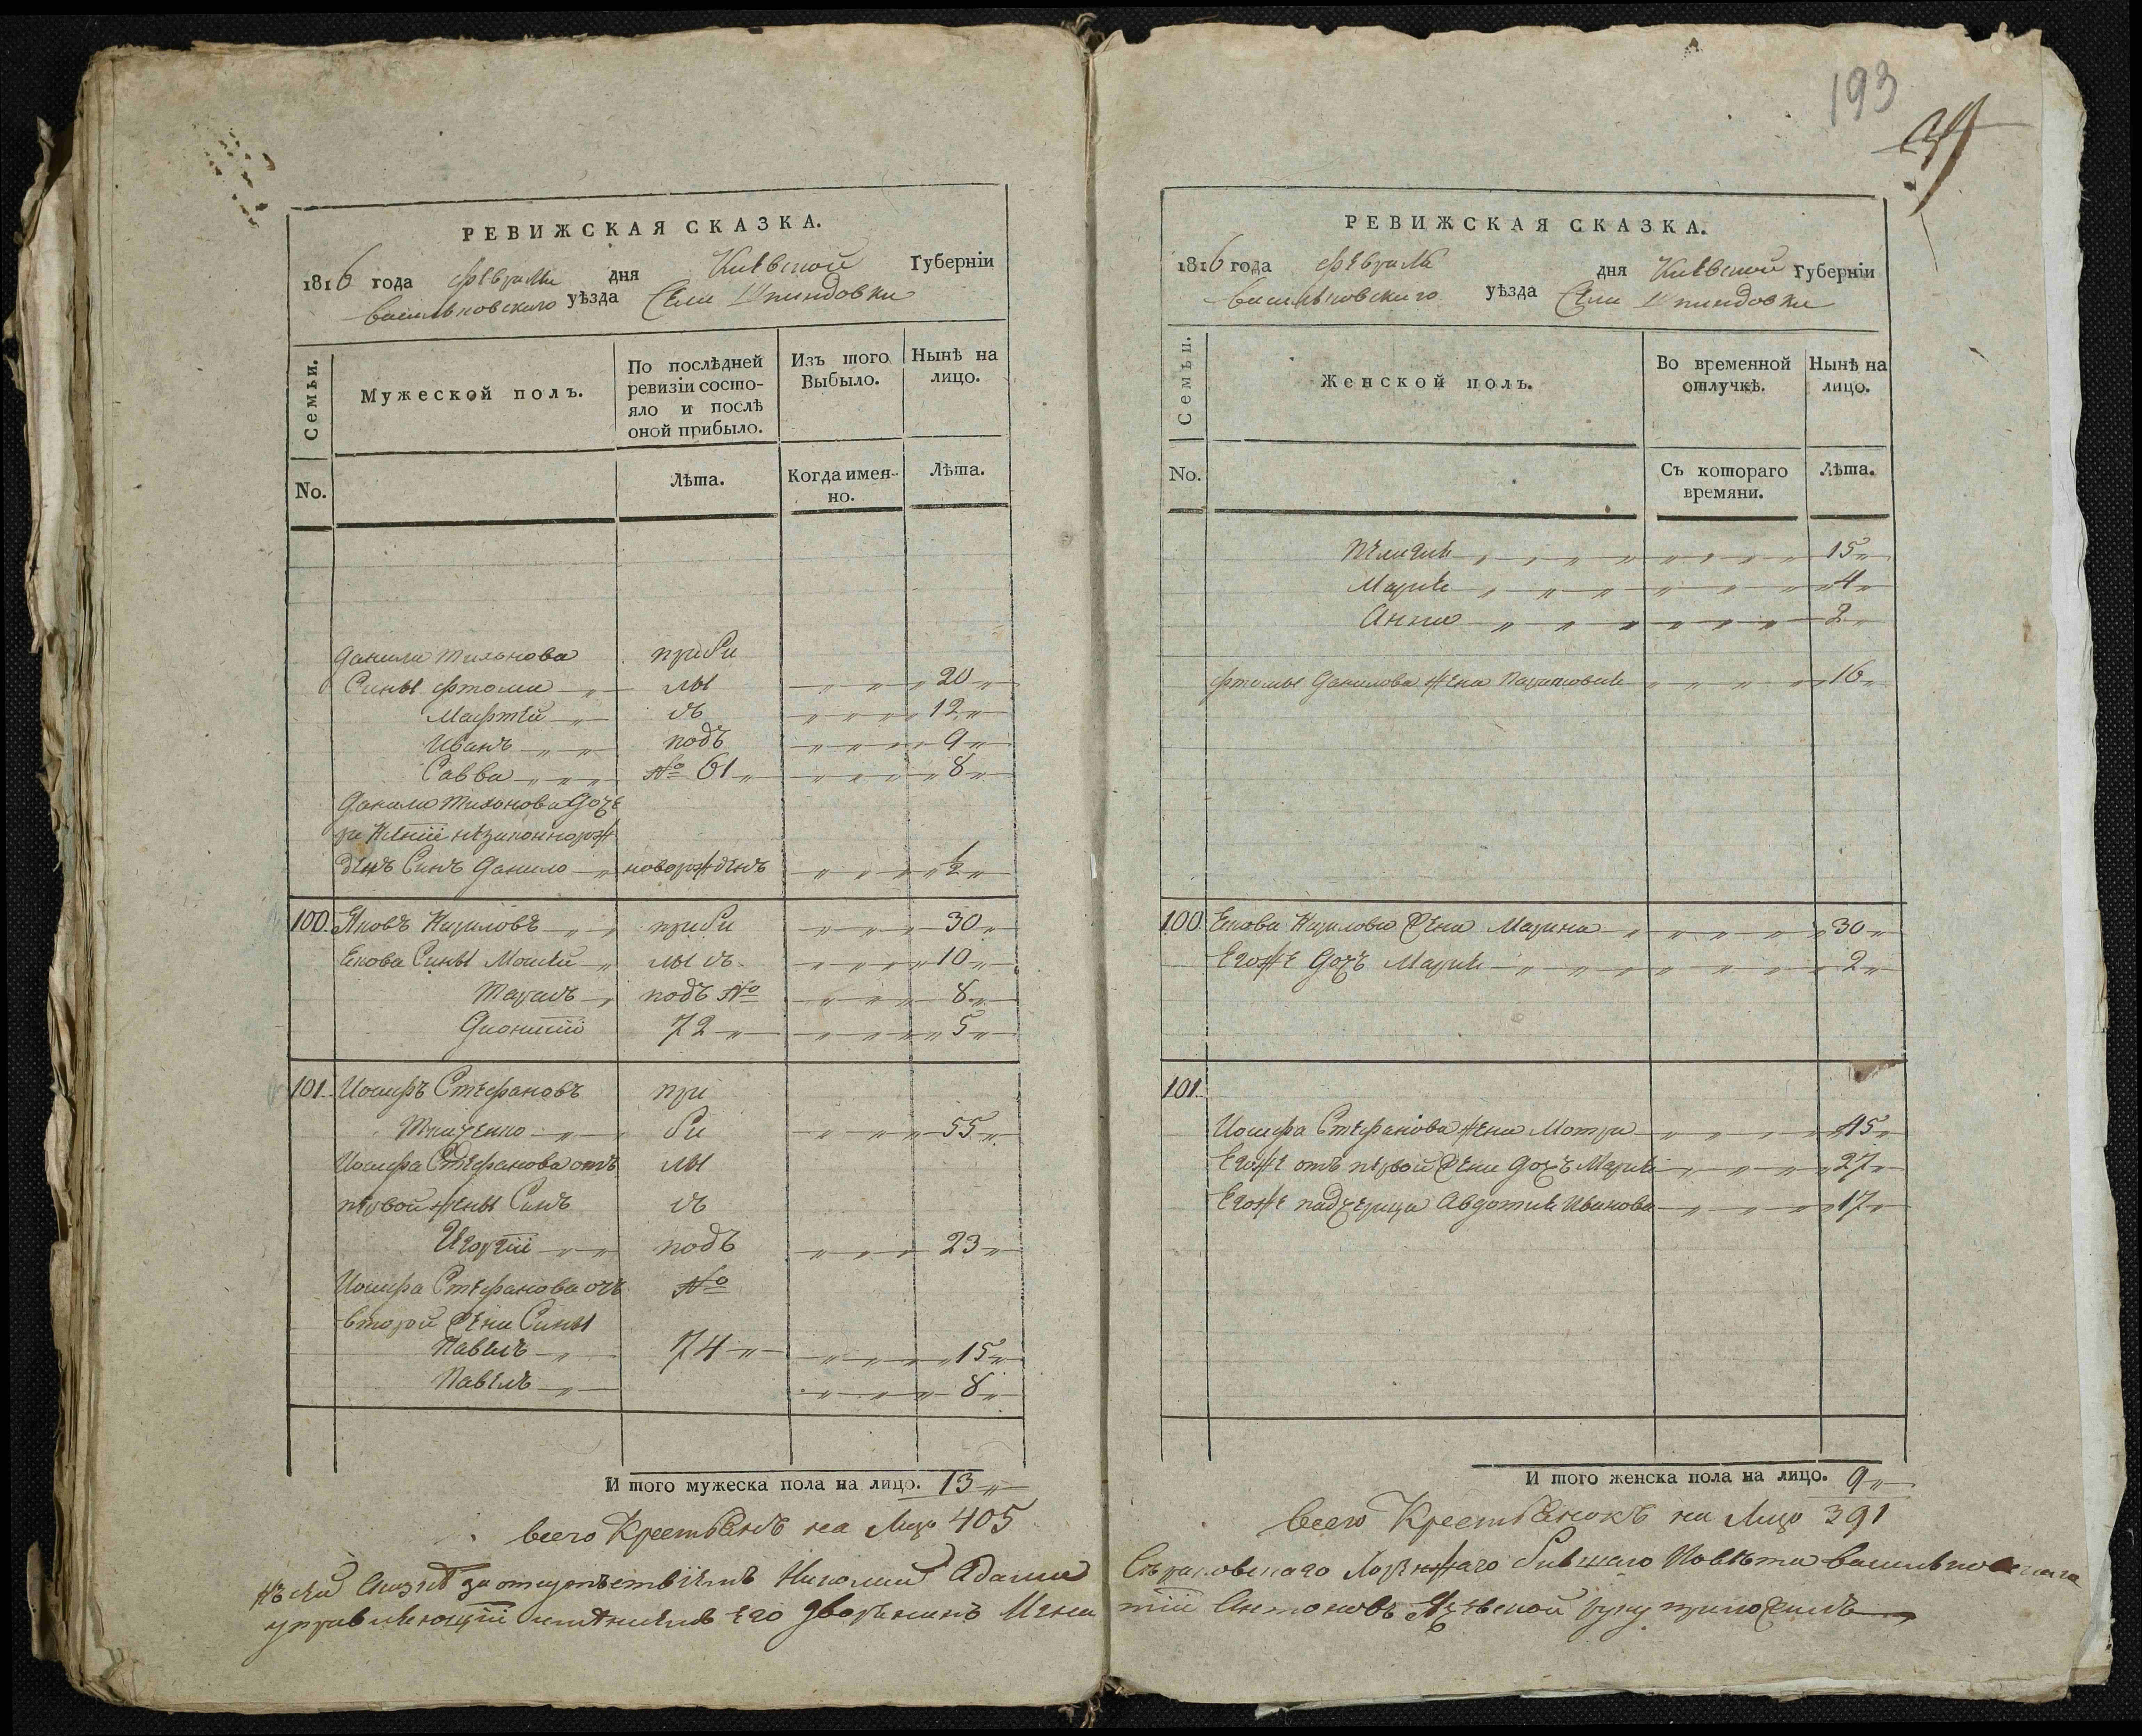 193
РЕВИЖСКАЯ СКАЗКА.
1816 года февраля дня Киевской Губерніи
васильковского уѣзда Села Шпиндовки
Семьи.
Мужеской полъ.
По послѣдней ревизіи состояло и послѣ оной прибыло.
Изъ того Выбыло.
Нынѣ на лицо.
No.
Лѣта.
Когда именно.
Лѣта.
Данила Тихонова приби
Сины фтома лы 20
Мафтей съ 12
Иванъ подъ 9
Савва № 61 8
Данила Тихонова Доче
ри Ксении незаконнорж
денъ Синъ Данило новорждѣнъ 1/2
100. Яковъ Кириловъ приби 30
Екова Сины Моисей лы съ 10
Тарасъ подъ № 8
Дионисій 72 5
101. Иосифъ Стефановъ при
Ткаченко би 55
Иосифа Стефанова отъ лы
первой жены Синъ съ
подъ 23
Иосифа Стефанова отъ №
второй жени Сины
Павелъ 74 15
Павелъ 8
И того мужеска пола на лицо. 13
всего Крестьянъ на Лицо 405
РЕВИЖСКАЯ СКАЗКА.
1816 года февраля дня Киевской Губерніи
васильковского уѣзда Села Шпиндовки
Семьи.
Женской полъ.
Во временной отлучкѣ.
Нынѣ на лицо.
No.
Съ котораго времяни.
Лѣта.
Пелагия 15
Мария 4
Анна 2
фтомы Данилова жена Парасковия 16
100. Екова Кирилова жена Марина 30
Егоже Дочъ Мария 2
101.
Иосифа Стефанова жена Мотря 45
Егоже отъ первой жени Дочъ Мария 27
Егоже падчерица Авдотия Иванова 17
И того женска пола на лицо. 9
всего Крестьянокъ на Лицо 391
къ сей Сказке за отсутствіемъ Николая Адама
управляющій имѣниемъ его дворянинъ Игна
тій Антоновъ руку приложилъ